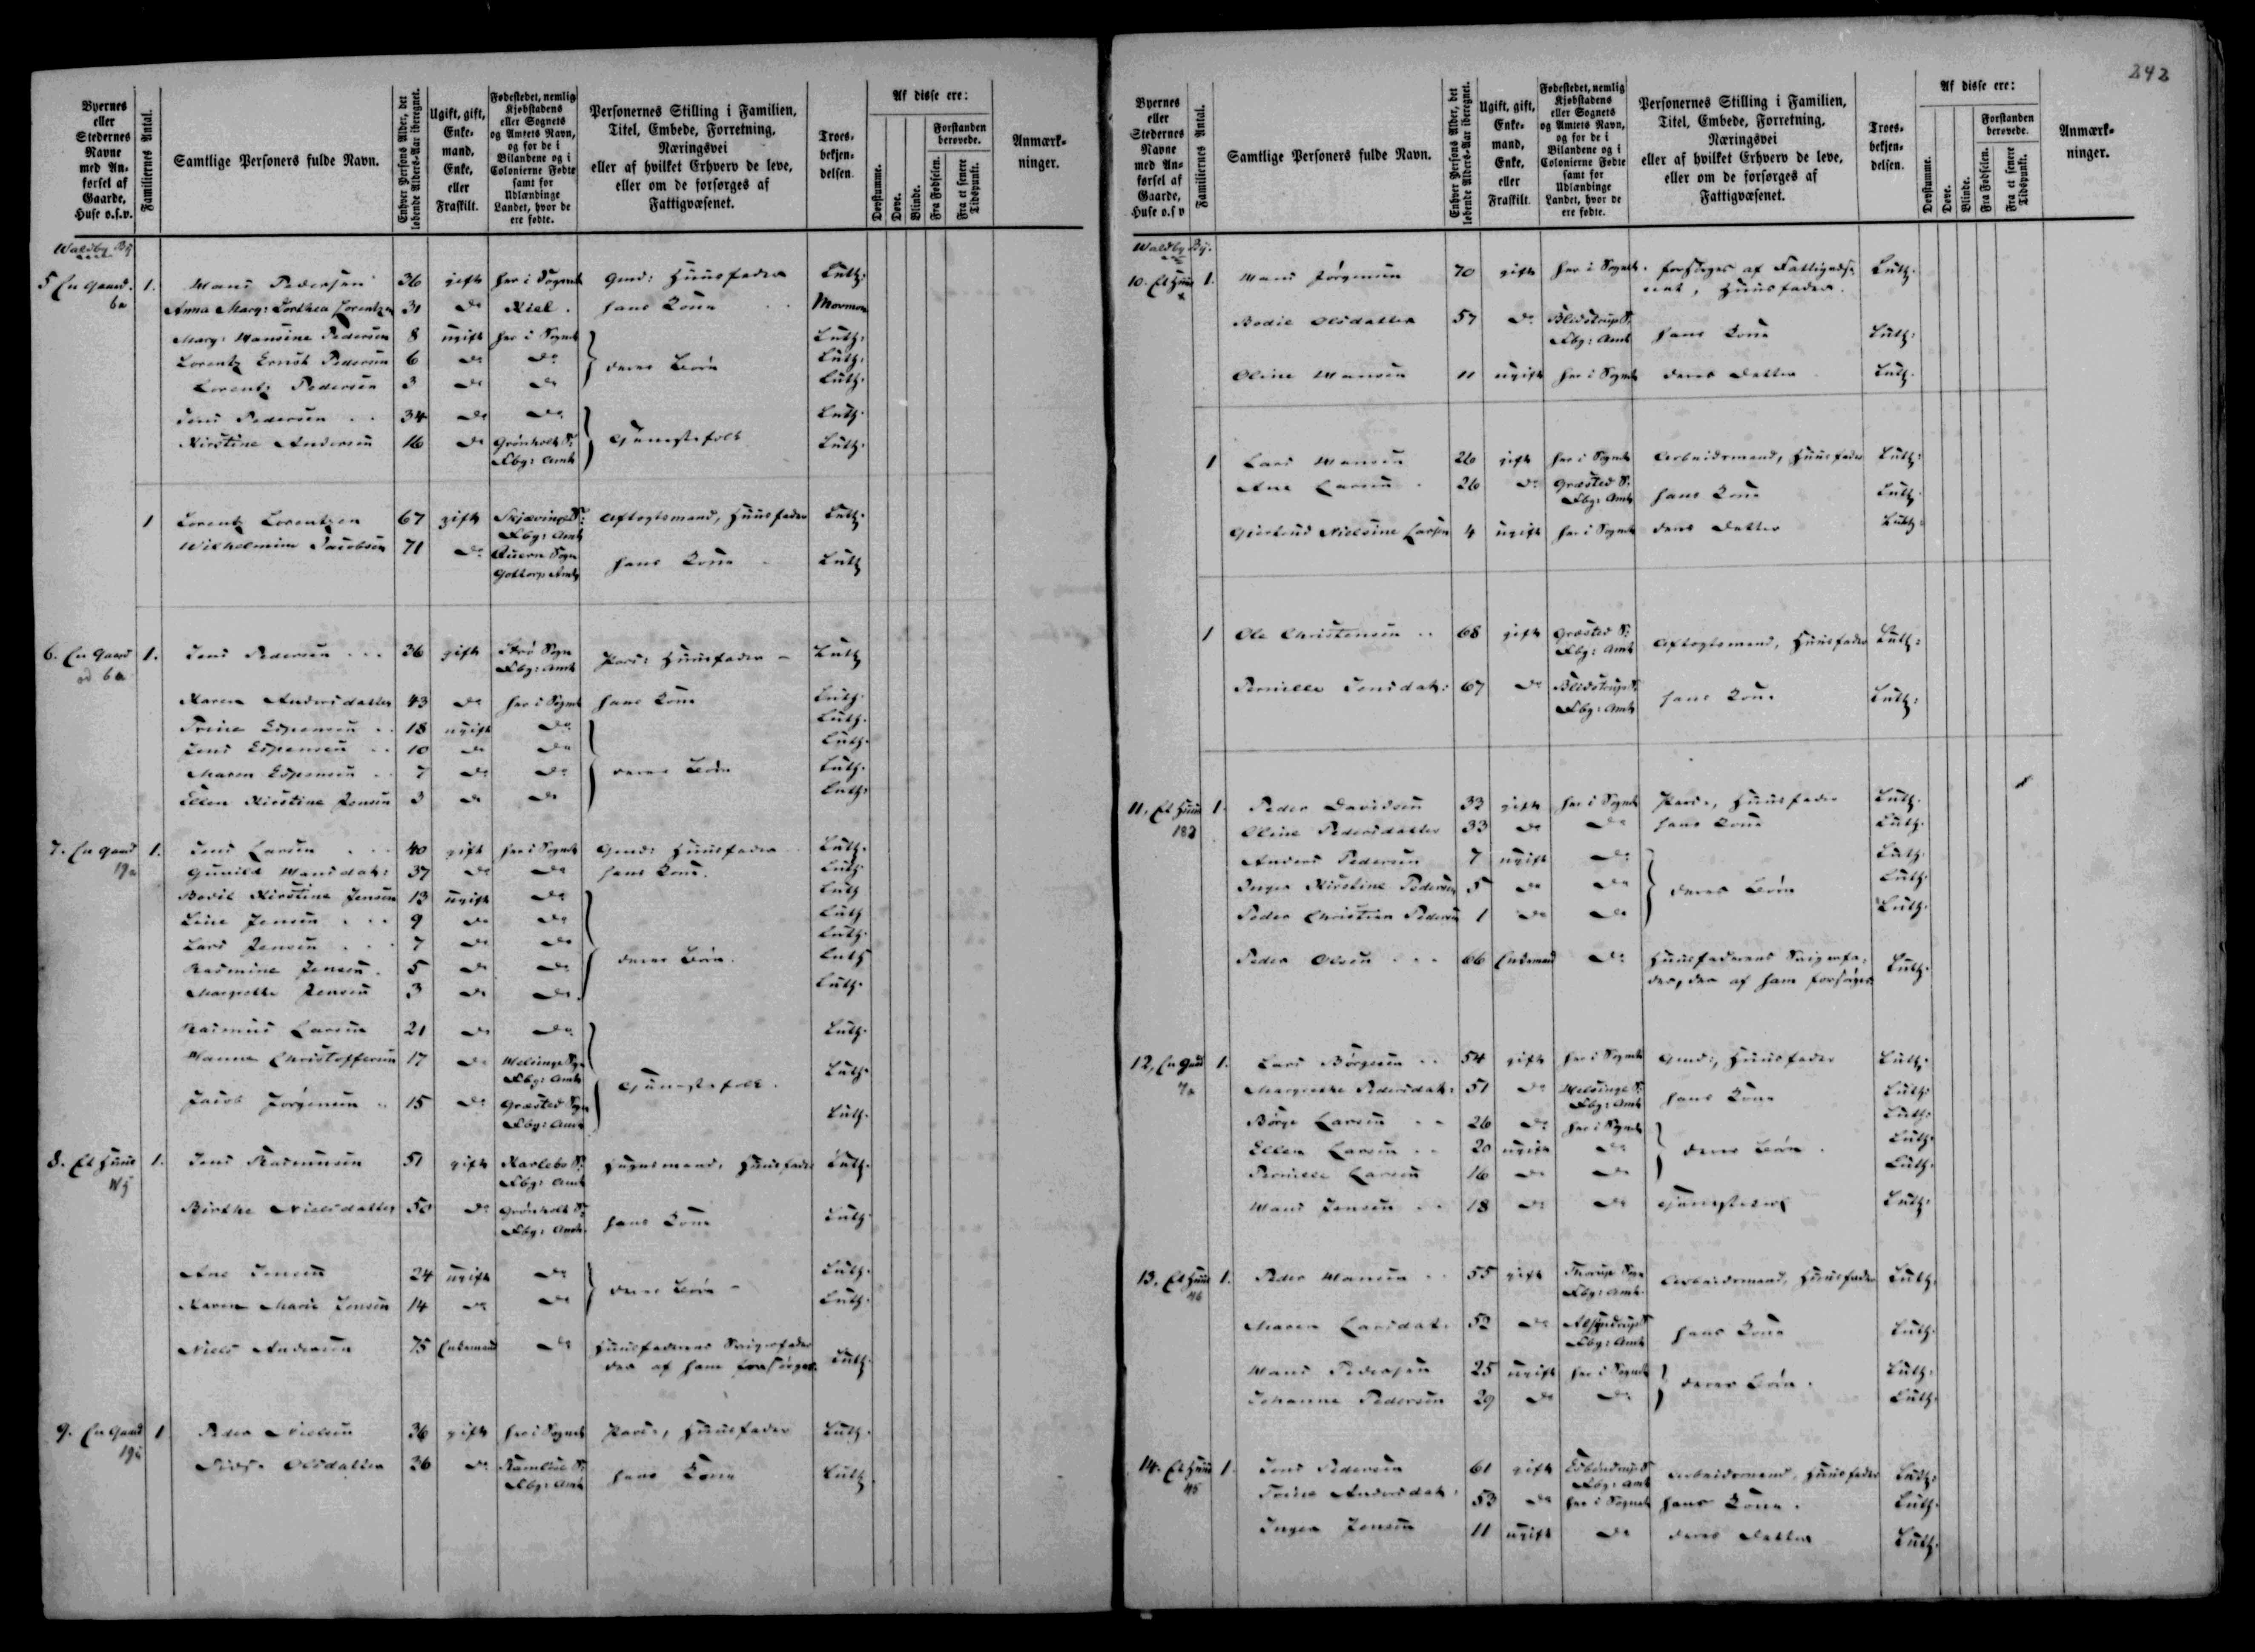 Byernes eller Stedernes Navne med Anførsel af Gaarde, Huse o.s.v.
Familiernes Antal.
Samtlige Personers fulde Navn.
Enhver Persons Alder, det løbende Alders-Aar iberegnet.
Ugift, gift, Enkemand, Enke, eller Fraskilt.
Fødestedet, nemlig Kjøbstadens eller Sognets og Amtets Navn, og for de i Bilandene og i Colonierne Fødte samt for Udlændinge Landet, hvor de ere fødte.
Personernes Stilling i Familien, Titel, Embede, Forretning, Næringsvei eller af hvilket Erhverv de leve, eller om de forsørges af Fattigvæsenet.
Troesbekjendelsen.
Af disse ere:
Døvstumme.
Døve.
Blinde.
Forstanden berøvede.
Fra Fødselen.
Fra et senere Tidspunkt.
Anmærkninger.
Waldby By
5 En Gaard. 1. Hans Pedersen 36 gift her i Sognet Gmd: Huusfader Luth:
6a Anna Marg: Dorthea Lorentzen 31 do Kiel. hans Kone Mormon
Marg: Hansine Pedersen 8 ugift her i Sognet Luth:
Lorentz Ernst Pedersen 6 do do deres Børn Luth:
Lorentz Pedersen 3 do do Luth:
Jens Pedersen 34 do do Luth:
Kirstine Andersen 16 do Grønholt S: Tjenestefolk Luth:
Fbg: Amt
1 Lorentz Lorentzen 67 gift Skjævinge S: Aftægtsmand, Huusfader Luth:
Fbg: Amt
Wilhelmine Jacobsen 71 do Sogn hans Kone Luth
Gottorp Amt
6. En Gaard 1. Jens Pedersen 36 gift Strø Sogn Huusfader Luth
6a Fbg: Amt
Karen Andersdatter 43 do her i Sognet hans Kone Luth:
Trine Espensen 18 ugift do Luth.
Jens Espensen 10 do do Luth.
Maren Espensen 7 do do deres Børn Luth.
Ellen Kirstine Jensen 3 do do Luth:
7. En Gaard 1. Jens Larsen 40 gift her i Sognet Gmd: Huusfader Luth.
19a Gunild Hansdat: 37 do do hans Kone. Luth.
Bodil Kirstine Jensen 13 ugift do Luth
Line Jensen 9 do do Luth
Lars Jensen 7 do do Luth.
Rasmine Jensen. 5 do do deres Børn. Luth
Margrethe Jensen 3 do do Luth.
Rasmus Larsen 21 do do Luth.
Hanne Christoffersen 17 do Melsinge Sogn Luth.
Fbg: Amt Tjenestefolk.
Jacob Jørgensen 15 do Græsted Sogn Luth.
Fbg: Amt
8. Et Huus 1. Jens Rasmussen 51 gift Karlebo S: Huusfader Luth.
Fbg: Amt
Birthe Nielsdatter 50 do Grønholt S: hans Kone Luth.
Fbg: Amt
Ane Jensen 24 ugift do Luth.
Karen Marie Jensen 14 do do deres Børn Luth.
Niels Andersen 75 Enkemand do Huusfaderens Svigerfader
der af ham forsørges. Luth.
9. En Gaard 1 Peder Nielsen 36 gift her i Sognet Huusfader Luth.
Sidse Olsdatter 36 do Ramløse S: hans Kone Luth
Fbg: Amt
242
Byernes eller Stedernes Navne med Anførsel af Gaarde, Huse o.s.v
Familiernes Antal.
Samtlige Personers fulde Navn.
Enhver Persons Alder, det løbende Alders-Aar iberegnet.
Ugift, gift, Enkemand, Enke, eller Fraskilt.
Fødestedet, nemlig Kjøbstadens eller Sognets og Amtets Navn, og for de i Bilandene og i Colonierne Fødte samt for Udlændinge Landet, hvor de ere fødte.
Personernes Stilling i Familien, Titel, Embede, Forretning, Næringsvei eller af hvilket Erhverv de leve, eller om de forsørges af Fattigvæsenet.
Troesbekjendelsen.
Af disse ere:
Døvstumme.
Døve.
Blinde.
Forstanden berøvede.
Fra Fødselen.
Fra et senere Tidspunkt.
Anmærkninger.
Waldby By.
10. Et Huus 1. Hans Jørgensen 70 gift her i Sognet. forsørges af Fattigvæse- Luth.
net, Huusfader.
Bodil Olsdatter 57 do Blidstrup S: hans Kone Luth:
Fbg: Amt
Oline Hansen 11 ugift her i Sognet deres Datter Luth.
1 Lars Hansen 26 gift her i Sognet Arbeidsmand, Huusfader Luth:
Ane Larsen 26 do Græsted S: hans Kone Luth.
Fbg: Amt
Gjertrud Nielsine Larsen 4 ugift her i Sognet deres Datter Luth:
1 Ole Christensen 68 gift Græsted S: Aftægtsmand, Huusfader Luth:
Fbg: Amt
Pernille Jensdat: 67 do Blidstrup S: hans Kone Luth:
Fbg: Amt
11. Et Huus 1. Peder Davidsen 32 gift her i Sognet Huusfader Luth.
Oline Pedersdatter 33 do do hans Kone Luth.
Anders Pedersen 7 ugift do Luth.
Inger Kirstine Pedersen 5 do do deres Børn Luth.
Peder Christian Pedersen 1 do do Luth.
Peder Olsen 66 Enkemand do Huusfaderens Svigerfa- Luth.
der, der af ham forsørges
12, En Gaard 1. Lars Børgesen 54 gift her i Sognet Gmd:, Huusfader Luth.
7a Margrethe Pedersdat: 51 do Melsinge S: hans Kone Luth.
Fbg: Amt
Børge Larsen 26 do her i Sognet Luth:
Ellen Larsen 20 ugift do deres Børn. Luth.
Pernille Larsen 16 do do Luth.
Hans Jensen 18 do do Luth.
13. Et Huus 1. Peder Hansen 55 gift Thorup Sogn Arbeidsmand, Huusfader Luth.
Fbg: Amt.
Maren Larsdat. 52 do hans Kone Luth.
Fbg: Amt
Hans Pedersen 25 ugift her i Sognet Luth.
Johanne Pedersen 29 do do deres Børn. Luth.
14. Et Huus 1. Jens Pedersen 61 gift Esbøndrup S Arbeidsmand, Huusfader Luth:
Fbg: Amt
Trine Andersdat: 53 do her i Sognet hans Kone. Luth.
Inger Jensen 11 ugift do deres Datter Luth.